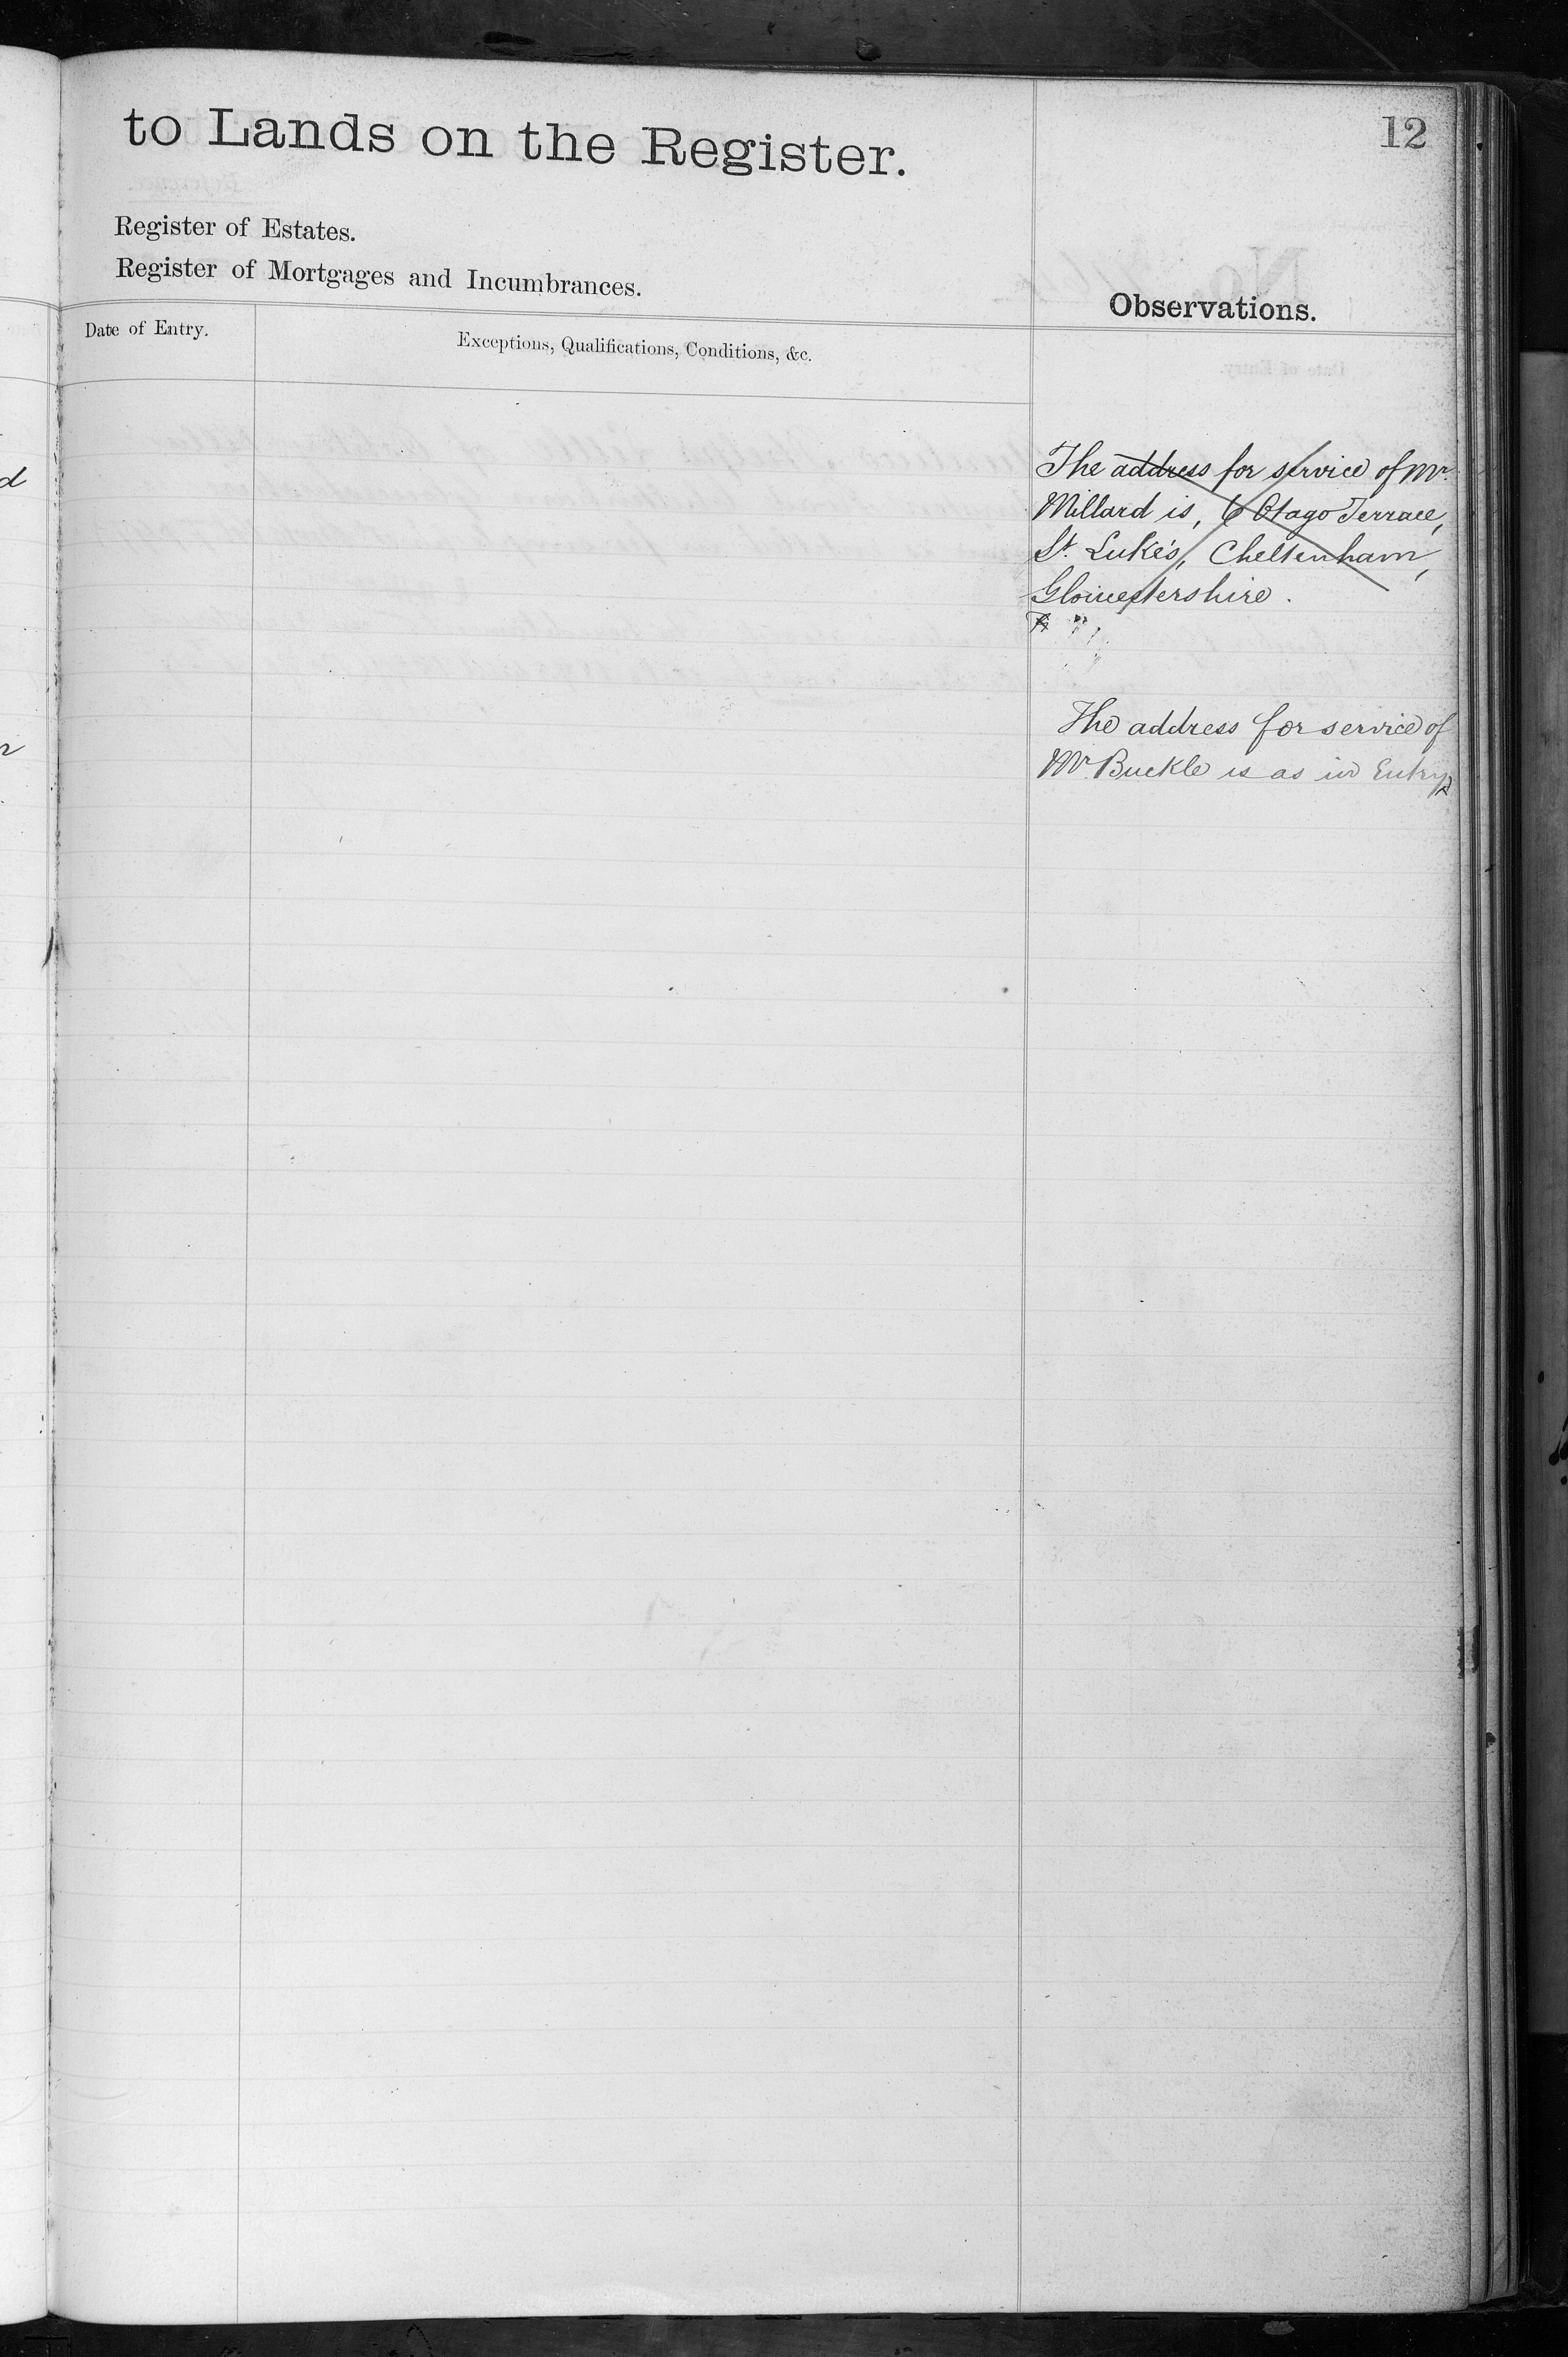 to Lands on the Register.
12
Register of Estates.
Register of Mortgages and Incumbrances.
Observations.
Date of Entry.
Exceptions, Qualifications, Conditions, &c.
The address for service of Mr.
Millard is, 6 Otago Terrace,
St. Luke's, Cheltenham,
Gloucestershire.
The address for service of
Mr. Buckle is as in Entry